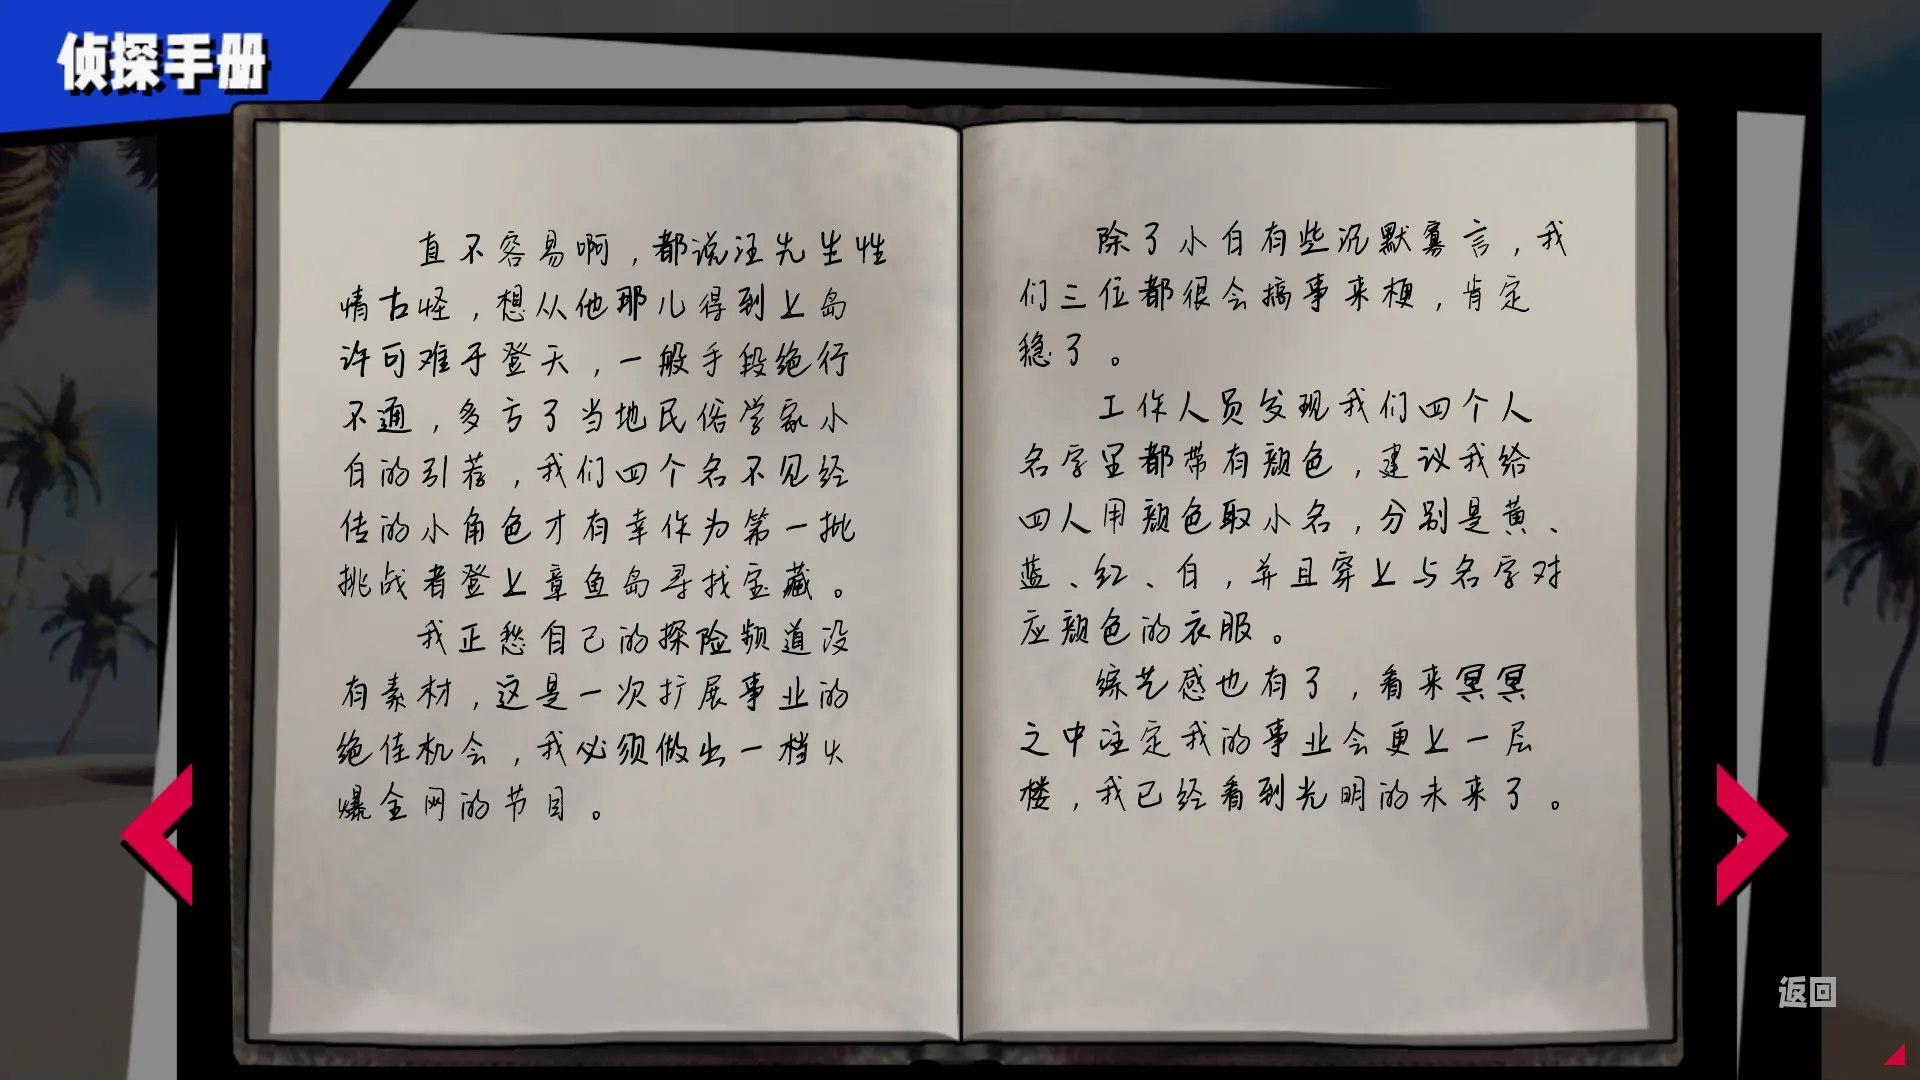 侦探手册
真不容易啊，都说汪先生性
情古怪，想从他那儿得到上岛
许可难于登天，一般手段绝行
不通，多亏了当地民俗学家小
白的引荐，我们四个名不见经
传的小角色才有幸作为第一批
挑战者登上章鱼岛寻找宝藏。
我正愁自己的探险频道没
有素材，这是一次扩展事业的
绝佳机会，我必须做出一档火
爆全网的节目。
除了小白有些沉默寡言，我
们三位都很会搞事来梗，肯定
稳了。
工作人员发现我们四个人
名字里都带有颜色，建议我给
四人用颜色取小名，分别是黄、
蓝、红、白，并且穿上与名字对
应颜色的衣服。
综艺感也有了，看来冥冥
之中注定我的事业会更上一层
楼，我已经看到光明的未来了。
返回